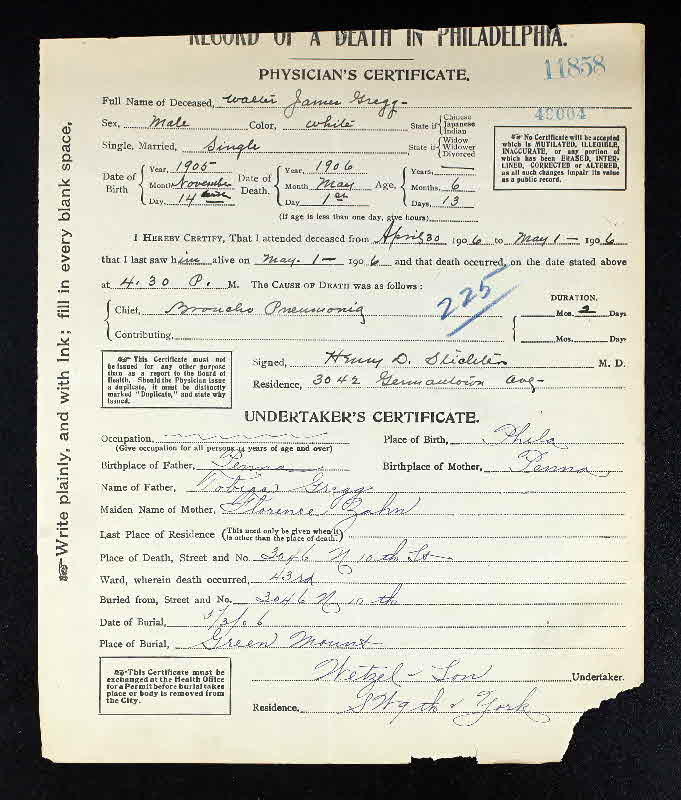 RECORD OF A DEATH IN PHILADELPHIA.
PHYSICIAN'S CERTIFICATE.
11858
Full Name of Deceased, Walter James Gregg
Sex, Male Color, White State if Chinese Japanese Indian
Single, Married, Single State if Widow Widower Divorced
No Certificate will be accepted
which is MUTILATED, ILLEGIBLE,
INACCURATE, or any portion of
which has been ERASED, INTER-
LINED, CORRECTED or ALTERED,
as all such changes impair its value
as a public record.
Date of Birth Year, 1905 Month November Day, 14
Date of Death. Year, 1906 Month May Day 1st
Age, Years, Months, 6 Days, 13
(If age is less than one day, give hours)
I HEREBY CERTIFY, That I attended deceased from April 30 1906 to May 1 - 1906
that I last saw him alive on May. 1 - 1906 and that death occurred, on the date stated above
at 4.30 P. M. The CAUSE OF DEATH was as follows:
DURATION.
Chief, Broncho Pneumonia Mos. 2 Days
225
Contributing, Mos. Days
This Certificate must not
be issued for any other purpose
than as a report to the Board of
Health. Should the Physician issue
a duplicate, it must be distinctly
marked "Duplicate," and state why
issued.
Signed, Henry D. Stichter M. D.
Residence, 3042 Germantown Ave
UNDERTAKER'S CERTIFICATE.
Occupation, Place of Birth, Phila
(Give occupation for all persons 14 years of age and over)
Birthplace of Father, Penna Birthplace of Mother, Penna
Name of Father, Tobias Gregg
Maiden Name of Mother, Florence Zahn
Last Place of Residence (This need only be given when it is other than the place of death.)
Place of Death, Street and No. 3046 N 10th St
Ward, wherein death occurred, 43rd
Buried from, Street and No. 3046 N 10th
Date of Burial, 5/3/06
Place of Burial, Green Mount
This Certificate must be
exchanged at the Health Office
for a Permit before burial takes
place or body is removed from
the City.
Wetzel & Son Undertaker.
Residence. S W 9th & York
Write plainly, and with Ink; fill in every blank space,